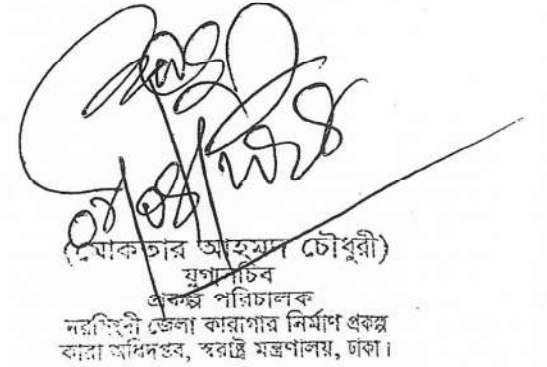 (মোকতার আহমদ চৌধুরী)
যুগ্মসচিব
প্রকল্প পরিচালক
নরসিংদী জেলা কারাগার নির্মাণ প্রকল্প
কারা অধিদপ্তর, স্বরাষ্ট্র মন্ত্রণালয়, ঢাকা।